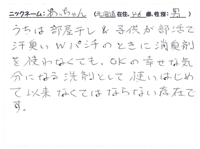 ニックネーム:あっちゃん (北海道在住、44歳、性別:男)
うちは部屋干し&子供が部活で
汗臭いWパンチのときに消臭剤
を使わなくても、OKの幸せな気
分になる洗剤として使いはじめ
て以来なくてはならない存在で
す。